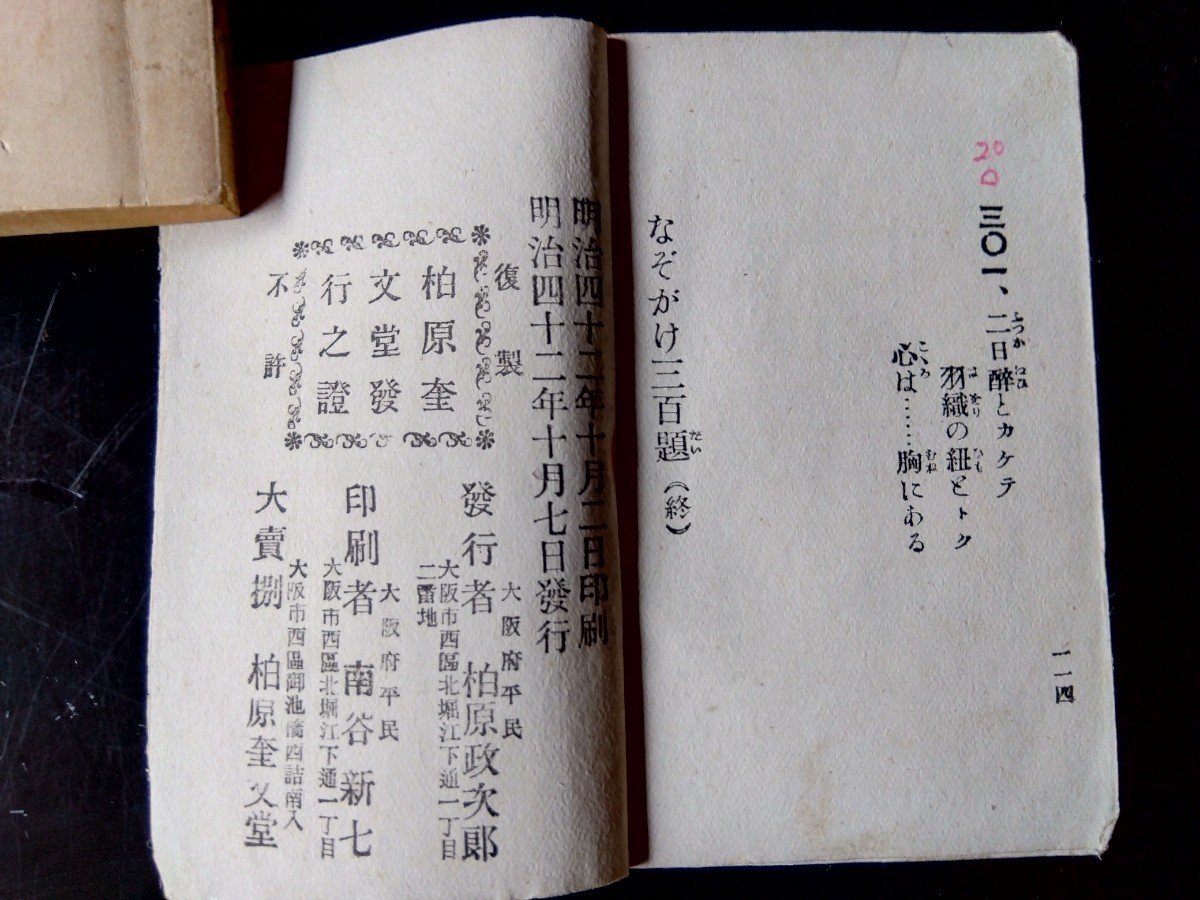 20
三〇一、二日醉とカケテ
羽織の紐とトク
心は……胸にある
一一四
なぞがけ三百題（終）
明治四十二年十月二日印刷
明治四十二年十月七日發行
復製
不許
柏原奎
文堂發
行之證
大阪府平民
發行者 柏原政次郎
大阪市西區北堀江下通一丁目
二番地
大阪府平民
印刷者 南谷新七
大阪市西區北堀江下通一丁目
大阪市西區御池橋西詰南入
大賣捌 柏原奎文堂